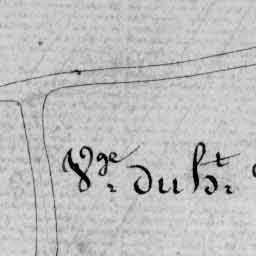 Vge. du ht.